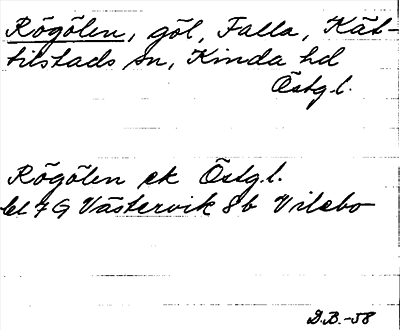 Rögölen, göl, Falla, Kät-
tilstads sn, Kinda hd
Östg.l.
Rögölen ek Östg.l.
bl 7 G Västervik 8b Vilebo
D.B.-58